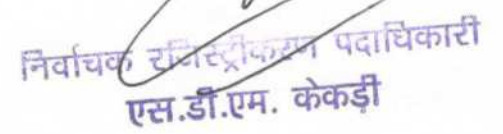 निर्वाचक रजिस्ट्रीकरण पदाधिकारी
एस.डी.एम. केकड़ी